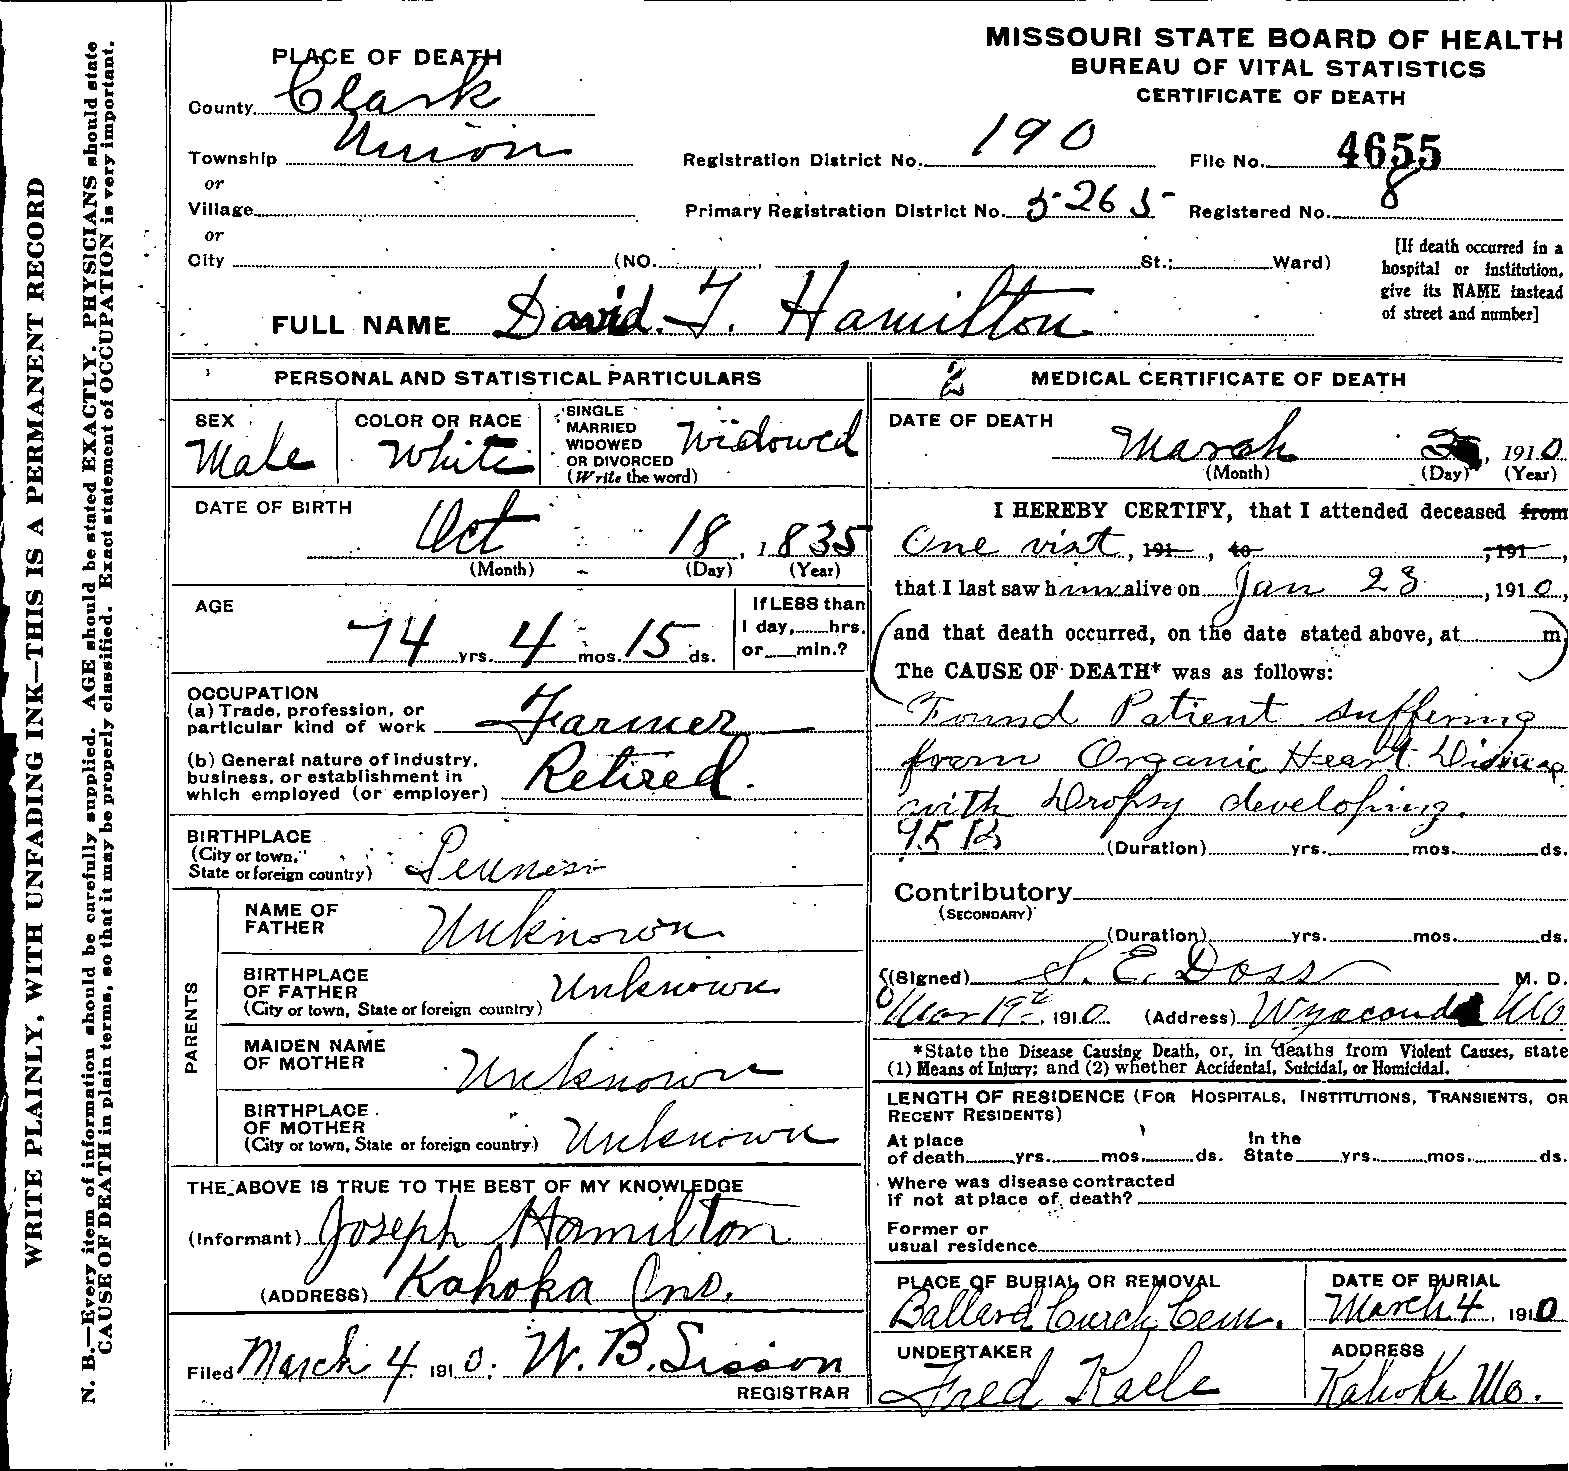 WRITE PLAINLY, WITH UNFADING INK—THIS IS A PERMANENT RECORD
N. B.—Every item of information should be carefully supplied. AGE should be stated EXACTLY. PHYSICIANS should state
CAUSE OF DEATH in plain terms, so that it may be properly classified. Exact statement of OCCUPATION is very important.
MISSOURI STATE BOARD OF HEALTH
BUREAU OF VITAL STATISTICS
CERTIFICATE OF DEATH
PLACE OF DEATH
County Clark
Township Union
or
Village
or
City (NO. St.; Ward)
Registration District No. 190 File No. 4655
Primary Registration District No. 5265 Registered No. 8
[If death occurred in a
hospital or institution,
give its NAME instead
of street and number]
FULL NAME David. T. Hamilton
PERSONAL AND STATISTICAL PARTICULARS
SEX
Male
COLOR OR RACE
White
SINGLE
MARRIED
WIDOWED
OR DIVORCED
(Write the word)
Widowed
DATE OF BIRTH
Oct 18, 1835
(Month) (Day) (Year)
AGE
74 yrs. 4 mos. 15 ds.
If LESS than
1 day, hrs.
or min.?
OCCUPATION
(a) Trade, profession, or
particular kind of work Farmer
(b) General nature of industry,
business, or establishment in
which employed (or employer) Retired.
BIRTHPLACE
(City or town,
State or foreign country)
PARENTS
NAME OF
FATHER Unknown
BIRTHPLACE
OF FATHER
(City or town, State or foreign country) Unknown
MAIDEN NAME
OF MOTHER Unknown
BIRTHPLACE
OF MOTHER
(City or town, State or foreign country) Unknown
THE ABOVE IS TRUE TO THE BEST OF MY KNOWLEDGE
(Informant) Joseph Hamilton
(ADDRESS) Kahoka Mo.
Filed March 4 1910. W. B. Sisson
REGISTRAR
2 MEDICAL CERTIFICATE OF DEATH
DATE OF DEATH
March , 1910
(Month) (Day) (Year)
I HEREBY CERTIFY, that I attended deceased from
One visit, 191 , to , 191 ,
that I last saw him alive on Jan 23, 1910,
(and that death occurred, on the date stated above, at m)
The CAUSE OF DEATH* was as follows:
Found Patient suffering
from Organic Heart Disease
with Dropsy developing.
(Duration) yrs. mos. ds.
Contributory
(SECONDARY)
(Duration) yrs. mos. ds.
(Signed) S. E. Doss M. D.
Mar 19th, 1910 (Address) Wyaconda Mo
*State the Disease Causing Death, or, in deaths from Violent Causes, state
(1) Means of Injury; and (2) whether Accidental, Suicidal, or Homicidal.
LENGTH OF RESIDENCE (FOR HOSPITALS, INSTITUTIONS, TRANSIENTS, OR
RECENT RESIDENTS)
At place
of death yrs. mos. ds.
In the
State yrs. mos. ds.
Where was disease contracted
if not at place of death?
Former or
usual residence
PLACE OF BURIAL OR REMOVAL
Ballard Curch Cem.
DATE OF BURIAL
March 4, 1910
UNDERTAKER
Fred Karle
ADDRESS
Kahoka Mo.